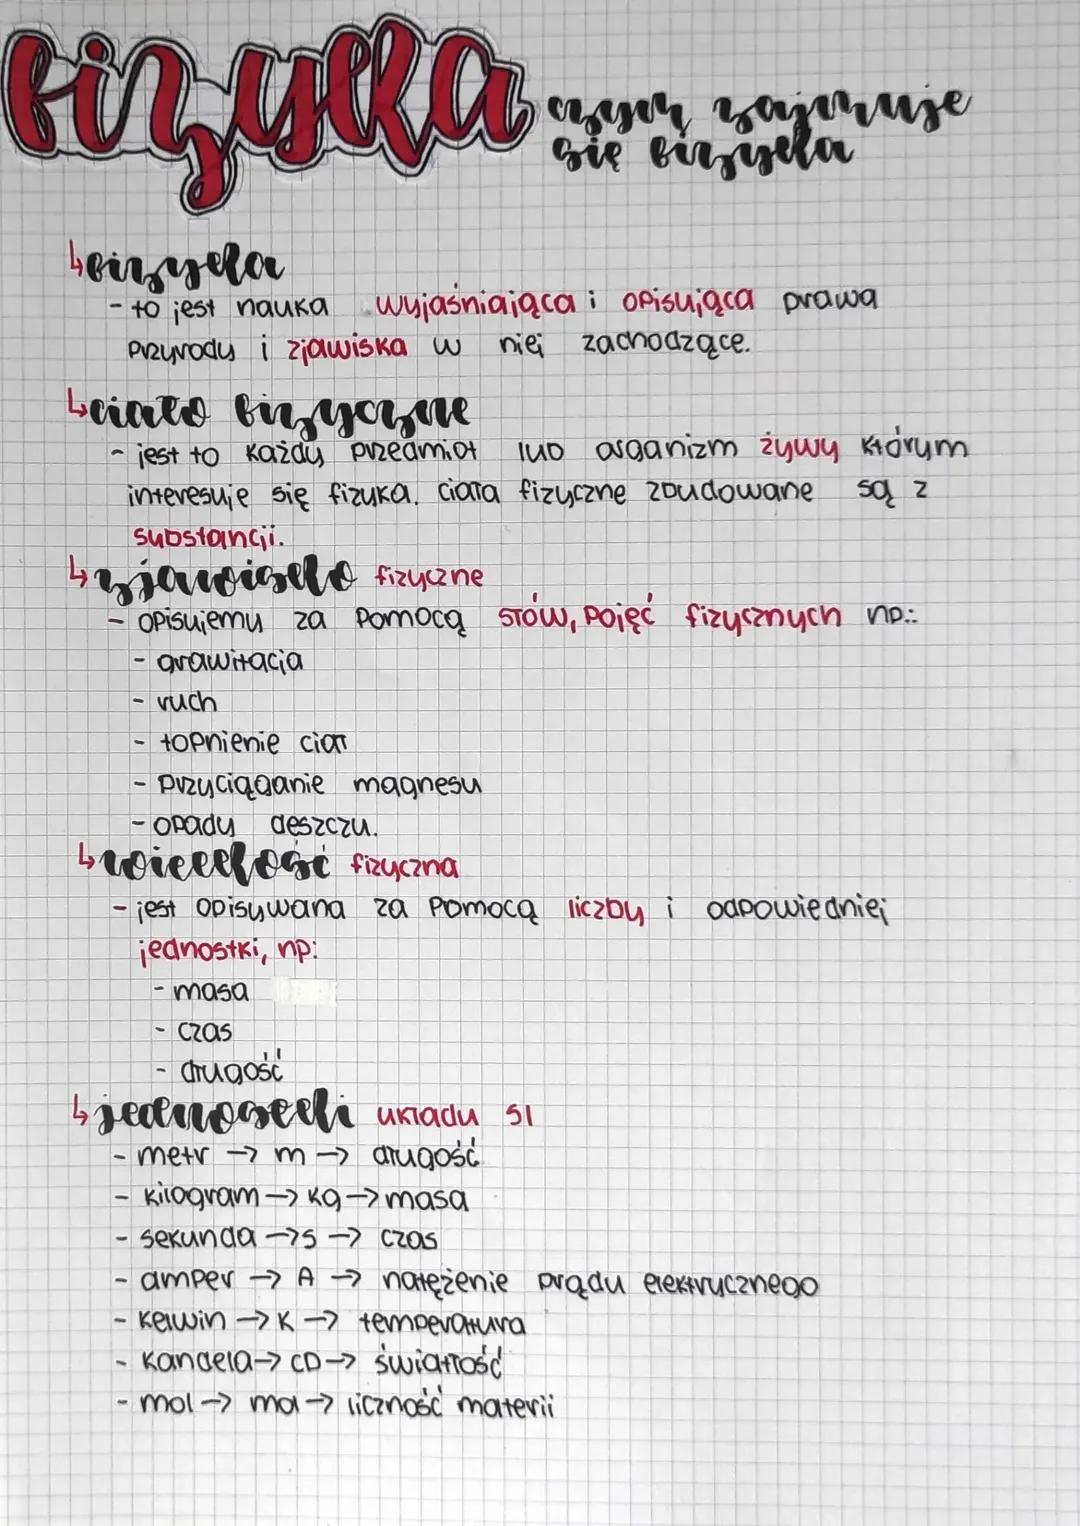 fizyka czym zajmuje
się fizyka
↳fizyka
- to jest nauka wyjaśniająca i opisująca prawa
przyrody i zjawiska w niej zachodzące.
↳ciało fizyczne
- jest to każdy przedmiot lub organizm żywy którym
interesuje się fizyka. ciała fizyczne zbudowane są z
substancji.
↳zjawisko fizyczne
- opisujemy za pomocą słów, pojęć fizycznych np.:
- grawitacja
- ruch
- topnienie ciał
- przyciąganie magnesu
- opady deszczu.
↳wielkość fizyczna
- jest opisywana za pomocą liczby i odpowiedniej
jednostki, np:
- masa
- czas
- długość
↳jednostki układu SI
- metr → m → długość
- kilogram → kg → masa
- sekunda → s → czas
- amper → A → natężenie prądu elektrycznego
- kelwin → K → temperatura
- kandela → CD → światłość
- mol → mol → liczność materii